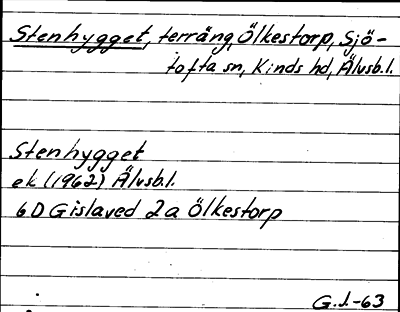 Stenhygget, terräng, Ölkestorp, Sjö-
tofta sn, Kinds hd, Älvsb.l.
Stenhygget
ek (1962) Älvsb.l.
6D Gislaved 2a Ölkestorp
G.I.-63